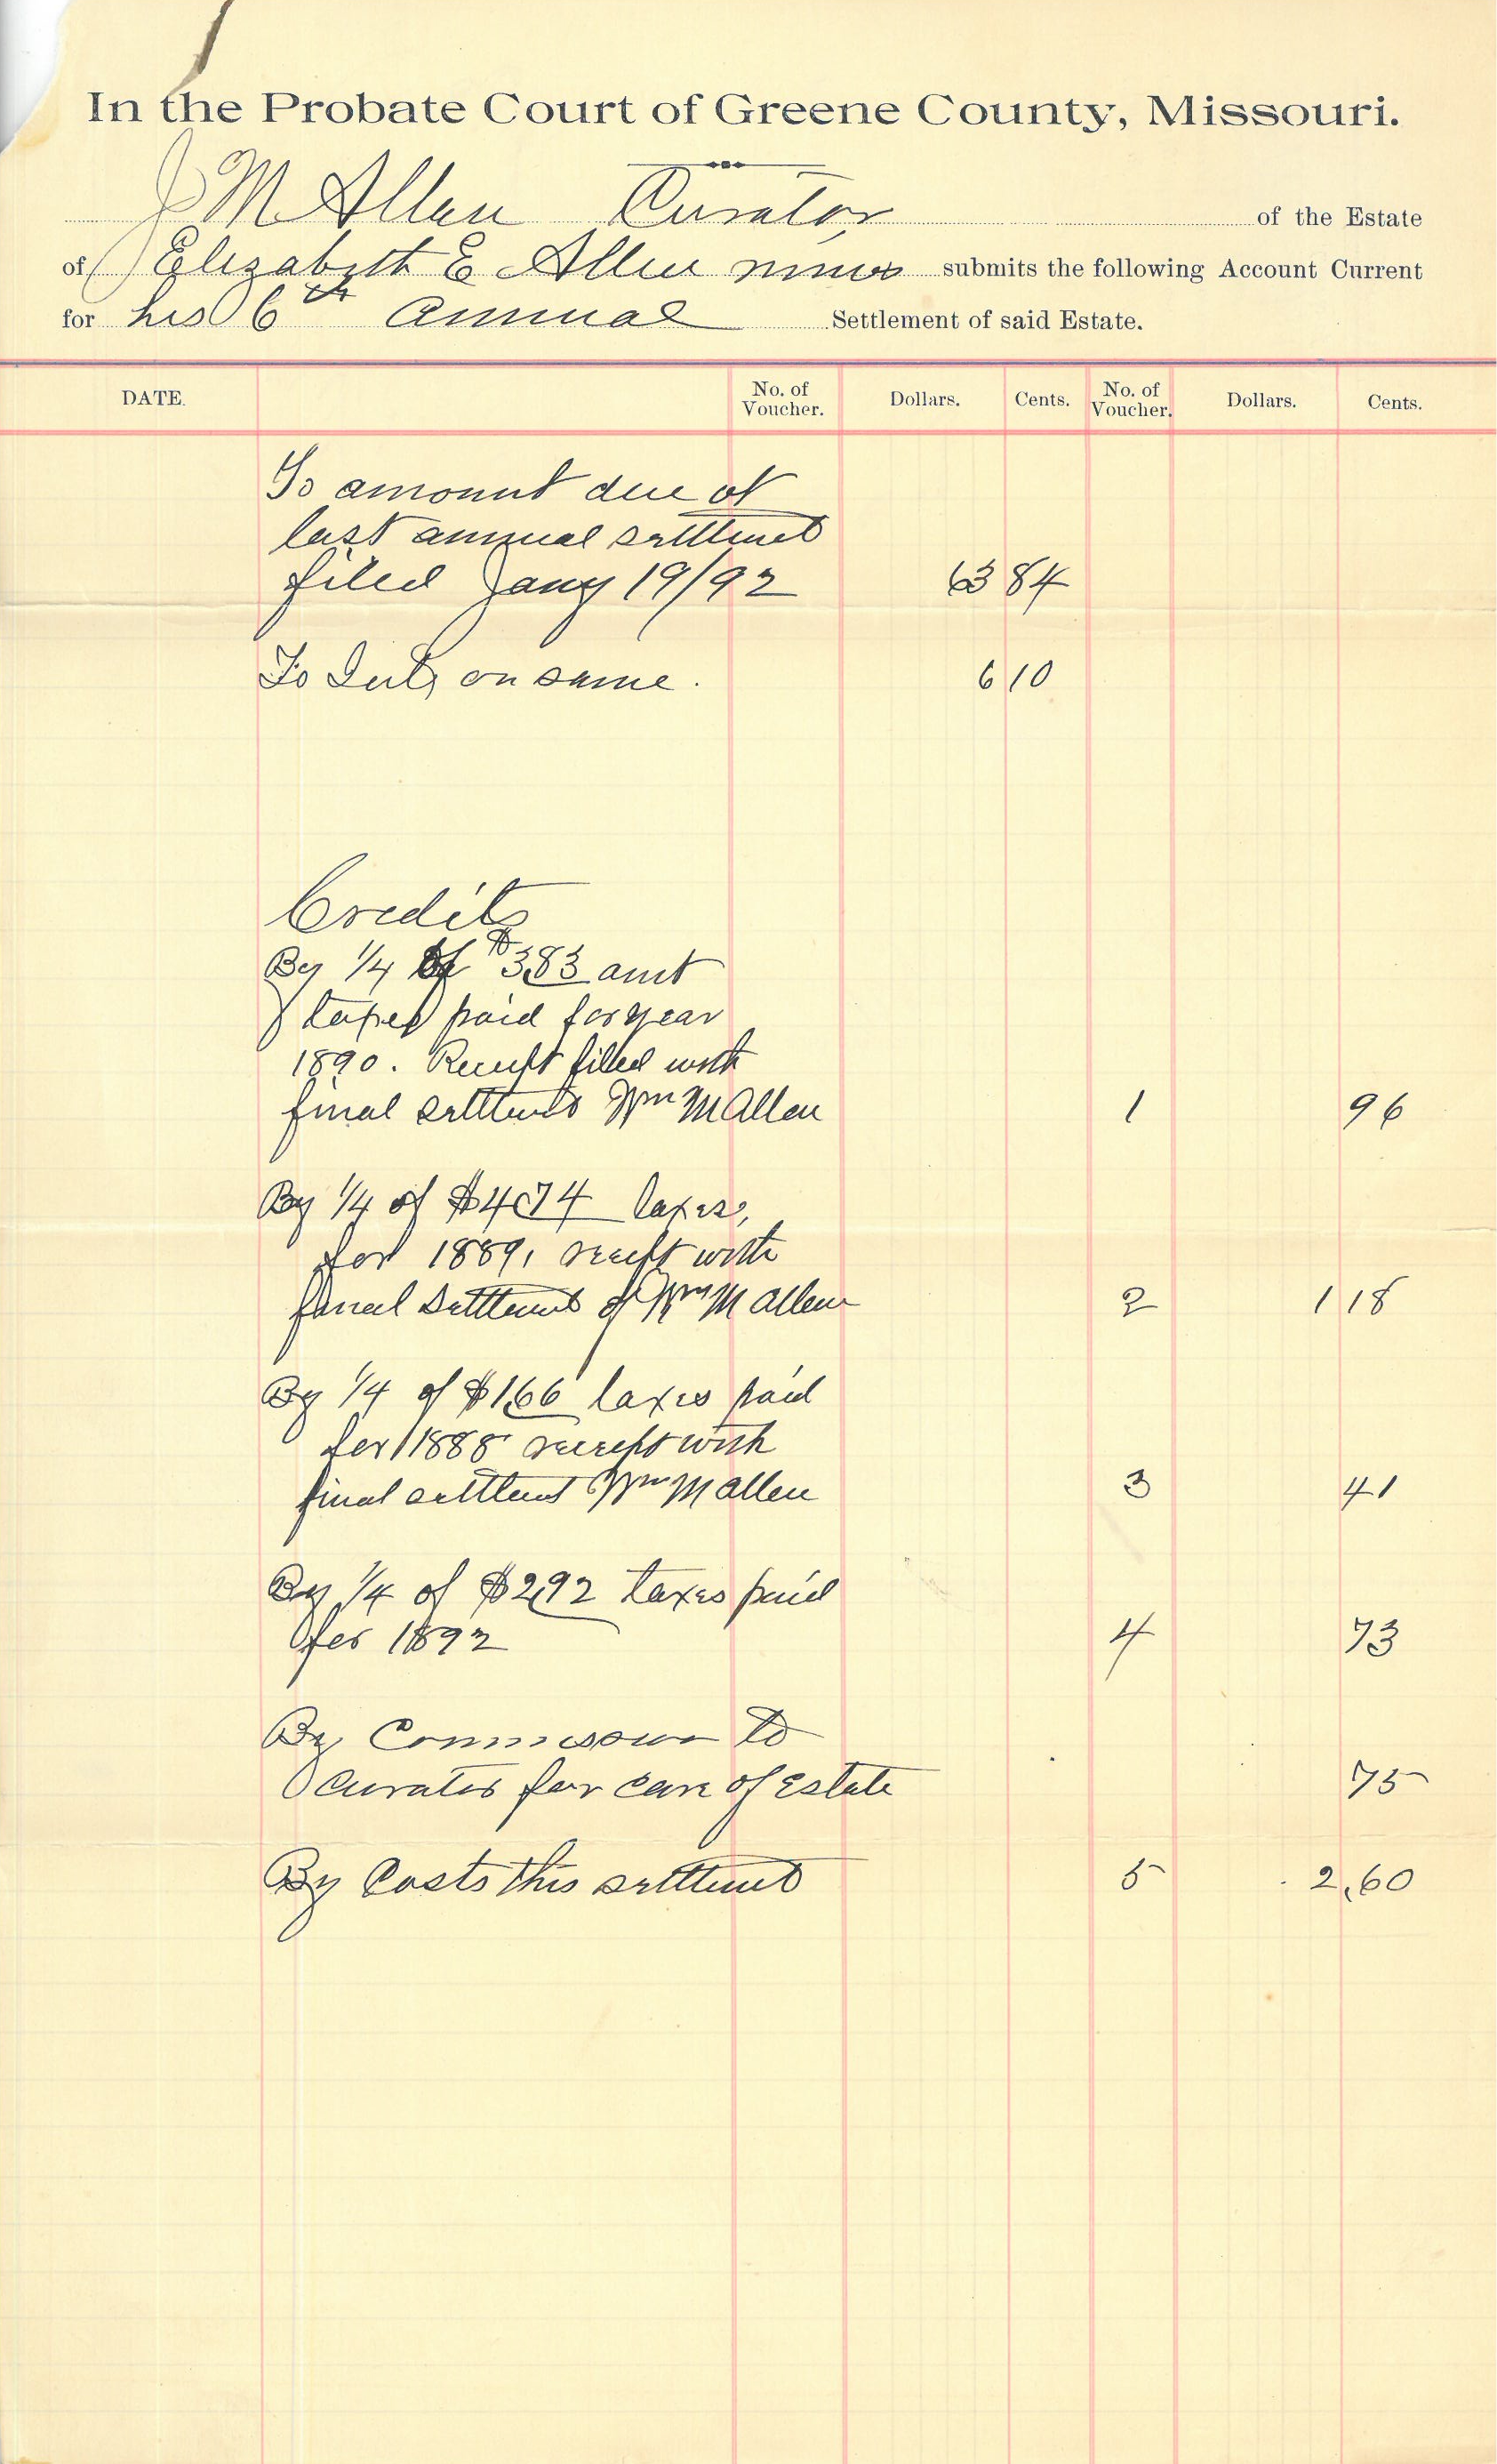 In the Probate Court of Greene County, Missouri.
J M Allen Curator of the Estate
of Elizabeth E Allen minor submits the following Account Current
for his 6th Annual Settlement of said Estate.
DATE. No. of Voucher. Dollars. Cents. No. of Voucher. Dollars. Cents.
To amount due at
last annual settlmet
filed Jany 19/92 63 84
To Int, on same. 6 10
Credits
By 1/4 of $3,83 amt
taxes paid for year
1890. Receipt filled with
final settlmet Wm M Allen 1 96
By 1/4 of $4,74 taxes,
for 1889, receipt with
final settlmet of Wm M Allen 2 1 18
By 1/4 of $1,66 taxes paid
for 1888 receipt with
final settlmet Wm M Allen 3 41
By 1/4 of $2,92 taxes paid
for 1892 4 73
By Commission to
Curator for care of Estate 75
By Costs this settlmet 5 2,60